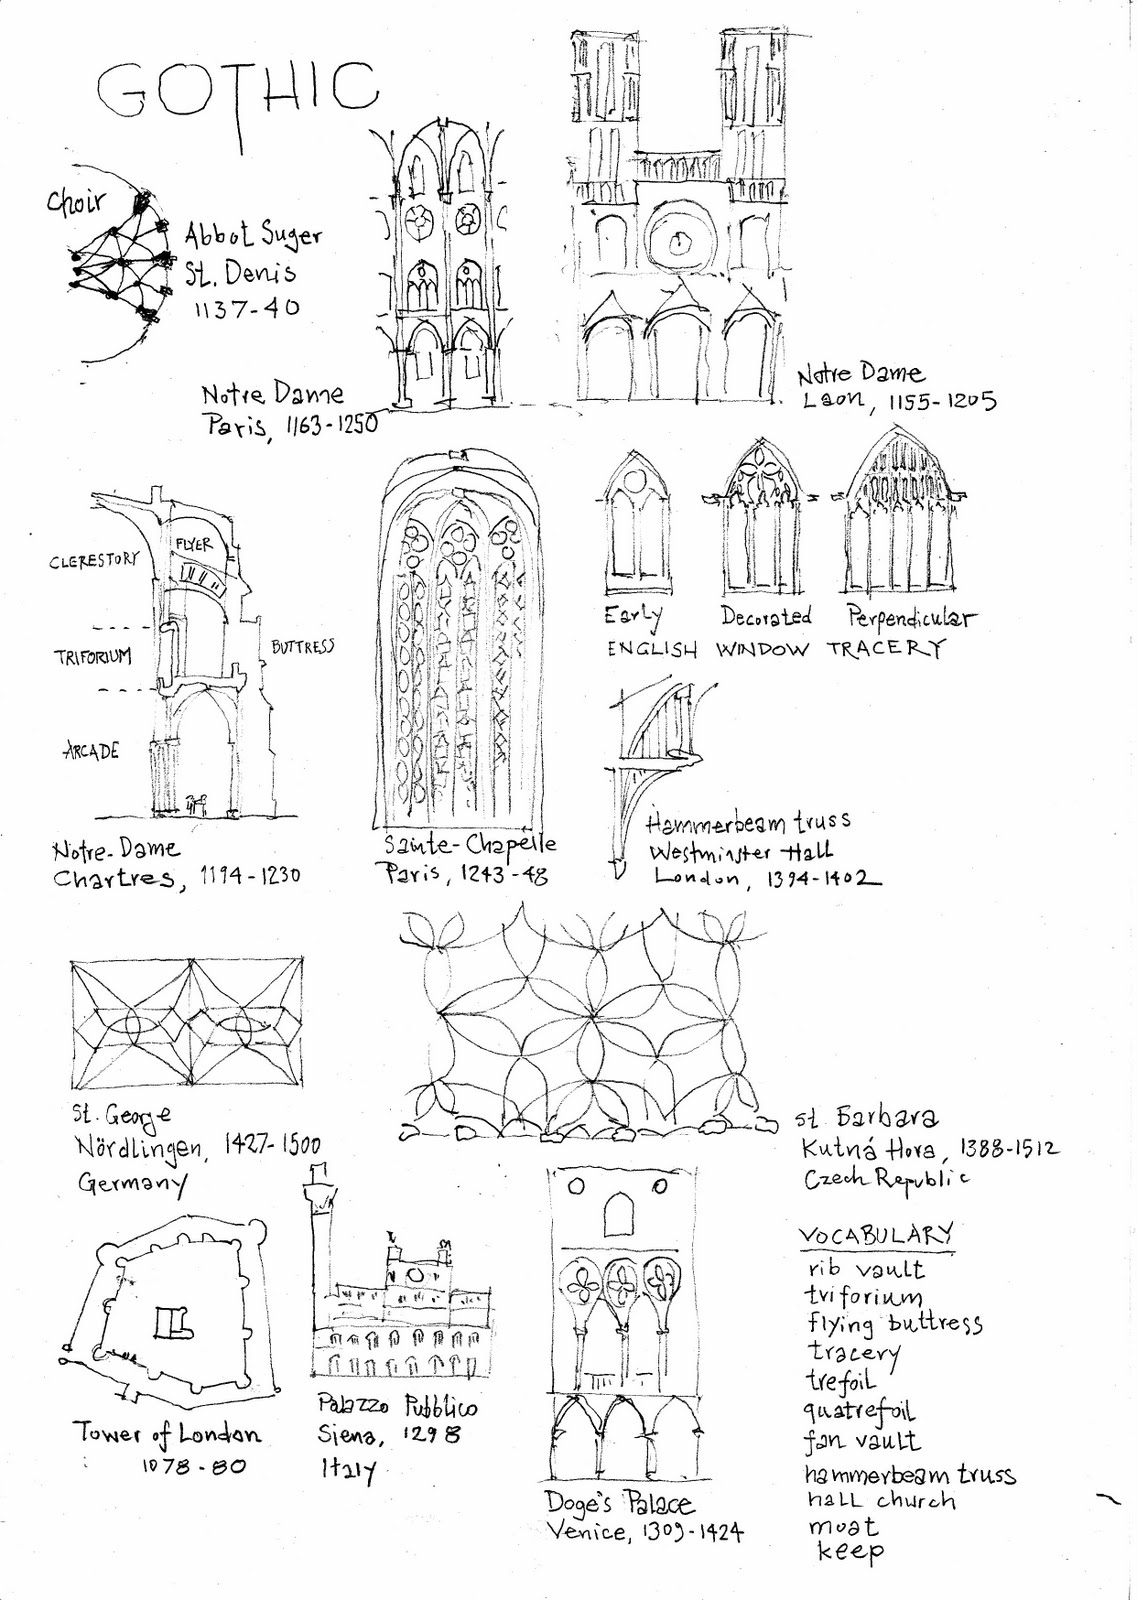 GOTHIC
Choir
Abbot Suger
St. Denis
1137-40
Notre Dame
Paris, 1163-1250
Notre Dame
Laon, 1155-1205
CLERESTORY
FLYER
TRIFORIUM
BUTTRESS
ARCADE
Notre-Dame
Chartres, 1194-1230
Sainte-Chapelle
Paris, 1243-48
Early
Decorated
Perpendicular
ENGLISH WINDOW TRACERY
Hammerbeam truss
Westminster Hall
London, 1394-1402
St. George
Nördlingen, 1427-1500
Germany
St. Barbara
Kutná Hora, 1388-1512
Czech Republic
Tower of London
1078-80
Palazzo Pubblico
Siena, 1298
Italy
Doge's Palace
Venice, 1309-1424
VOCABULARY
rib vault
triforium
flying buttress
tracery
trefoil
quatrefoil
fan vault
hammerbeam truss
hall church
moat
keep